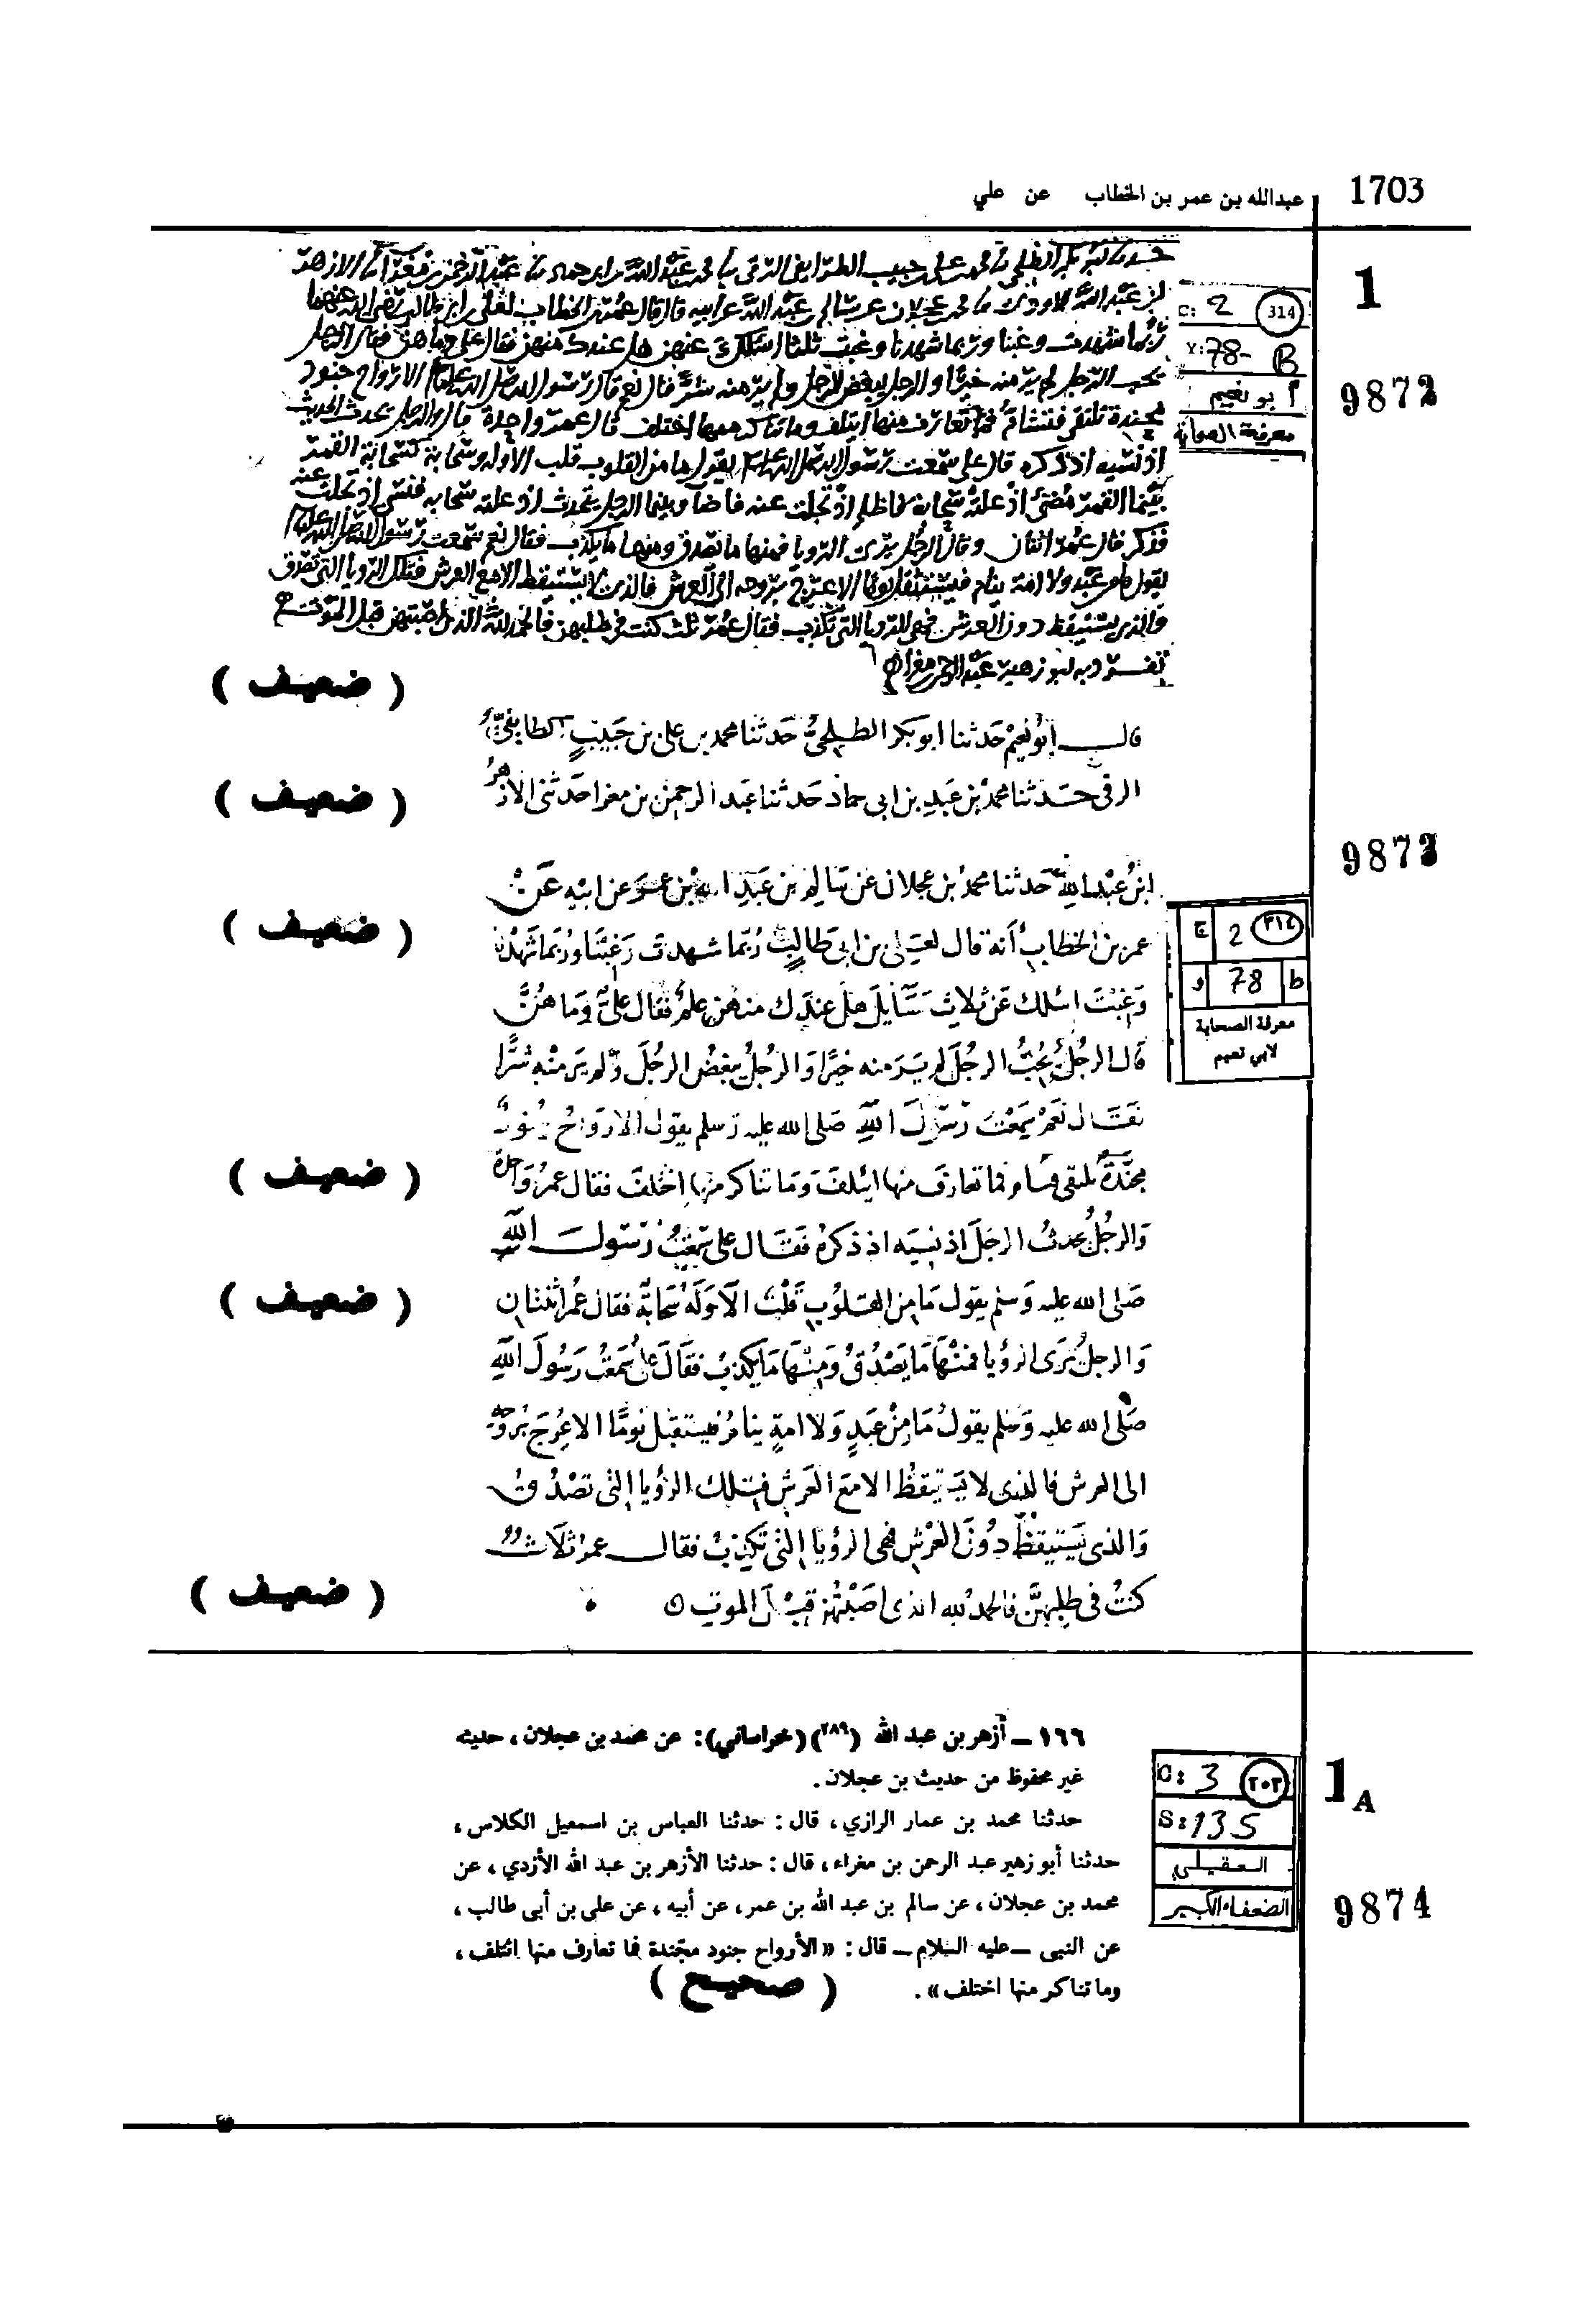 1703
عبدالله بن عمر بن الخطاب عن علي
1
C: 2 314
Y: 78- B
أبو نعيم
معرفة الصحابة
9872
حدثنا ابو بكر الطلحي ثنا محمد بن علي بن حبيب الطرايفي الرقي
لز عبد الله الاودي ثنا محمد بن عجلان عن سالم بن عبد الله عن ابيه قال قال عمر بن الخطاب لعلي بن ابي طالب رضي الله عنهما
ربما شهدت وغبنا وربما شهدنا وغبت ثلثا اسلك عنهن هل عندك منهن فقال علي وما هن فقال الرجل
يحب الرجل لم ير منه خيرا والرجل يبغض الرجل ولم ير منه شرا قال نعم قال رسول الله صلى الله عليه الارواح جنود
مجندة تلتقي فتشام فما تعارف منها ايتلف وما تناكر منها اختلف قال عمر واحدة قال والرجل يحدث الحديث
اذ نسيه اذ ذكره قال علي سمعت رسول الله صلى الله عليه يقول ما من القلوب قلب الا وله سحابة كسحابة القمر
بينما القمر مضئ اذ علته سحابة فاظلم اذ تجلت عنه فاضا وبينما الرجل يتحدث اذ علته سحابه فنسي اذ تجلت عنه
فذكر قال عمر اثنان وقال الرجل يرى الرويا فمنها ما تصدق ومنها ما يكذب فقال نعم سمعت رسول الله صلى الله عليه
يقول ما من عبد ولا امة ينام فيستثقل نوما الا عرج بروحه الى العرش فالذي لا يستيقظ الا مع العرش فتلك الرويا التي تصدق
والذي يستيقظ دون العرش فهي الرويا التي تكذب فقال عمر ثلث كنت في طلبهن فالحمد لله الذي اصبتهن قبل الموت
تفرد به ابو زهير عبد الرحمن بن مغرا
( ضعيف )
قال ابو نعيم حدثنا ابو بكر الطلحي حدثنا محمد بن علي بن حبيب الطايفي
الرقي حدثنا محمد بن عبد بن ابي حماد حدثنا عبد الرحمن بن مغرا حدثني الازهر
( ضعيف )
9873
ابن عبد الله حدثنا محمد بن عجلان عن سالم بن عبد الله بن عمر عن ابيه عن
( ضعيف )
ج 2 ٣١٤
و 78 ط
معرفة الصحابة
لابي نعيم
عمر بن الخطاب أنه قال لعلي بن ابي طالب ربما شهدت وغبنا وربما شهدنا
وغبت اسلك عن ثلاث مسايل هل عندك منهن علم فقال علي وما هن
قال الرجل يحب الرجل لم ير منه خيرا والرجل يبغض الرجل ولم ير منه شرا
فقال نعم سمعت رسول الله صلى الله عليه وسلم يقول الارواح جنود
مجندة تلتقي فتشام فما تعارف منها ائتلف وما تناكر منها اختلف فقال عمر واحدة
( ضعيف )
والرجل يحدث الرجل اذ نسيه اذ ذكره فقال علي سمعت رسول الله
صلى الله عليه وسلم يقول ما من القلوب قلب الا وله سحابة فقال عمر اثنتان
( ضعيف )
والرجل يرى الرؤيا فمنها ما يصدق ومنها ما يكذب فقال علي سمعت رسول الله
صلى الله عليه وسلم يقول ما من عبد ولا امة ينام فيستقبل نوما الا عرج بروحه
الى العرش فالذي لا يستيقظ الا مع العرش فتلك الرؤيا التي تصدق
والذي يستيقظ دون العرش فهي الرؤيا التي تكذب فقال عمر ثلاث
كنت في طلبهن فالحمد لله الذي اصبتهن قبل الموت
( ضعيف )
١٦٦ – أزهر بن عبد الله (٢٨٩) (خراساني): عن محمد بن عجلان، حديثه
غير محفوظ من حديث بن عجلان.
حدثنا محمد بن عمار الرازي، قال: حدثنا العباس بن اسمعيل الكلاس،
حدثنا أبو زهير عبد الرحمن بن مغراء، قال: حدثنا الأزهر بن عبد الله الأزدي، عن
محمد بن عجلان، عن سالم بن عبد الله بن عمر، عن أبيه، عن علي بن أبي طالب،
عن النبي – عليه السلام – قال: «الأرواح جنود مجندة فما تعارف منها ائتلف،
وما تناكر منها اختلف».
( صحيح )
1A
C: 3 ٢٠٣
S: 135
العقيلي
الضعفاء الكبير
9874